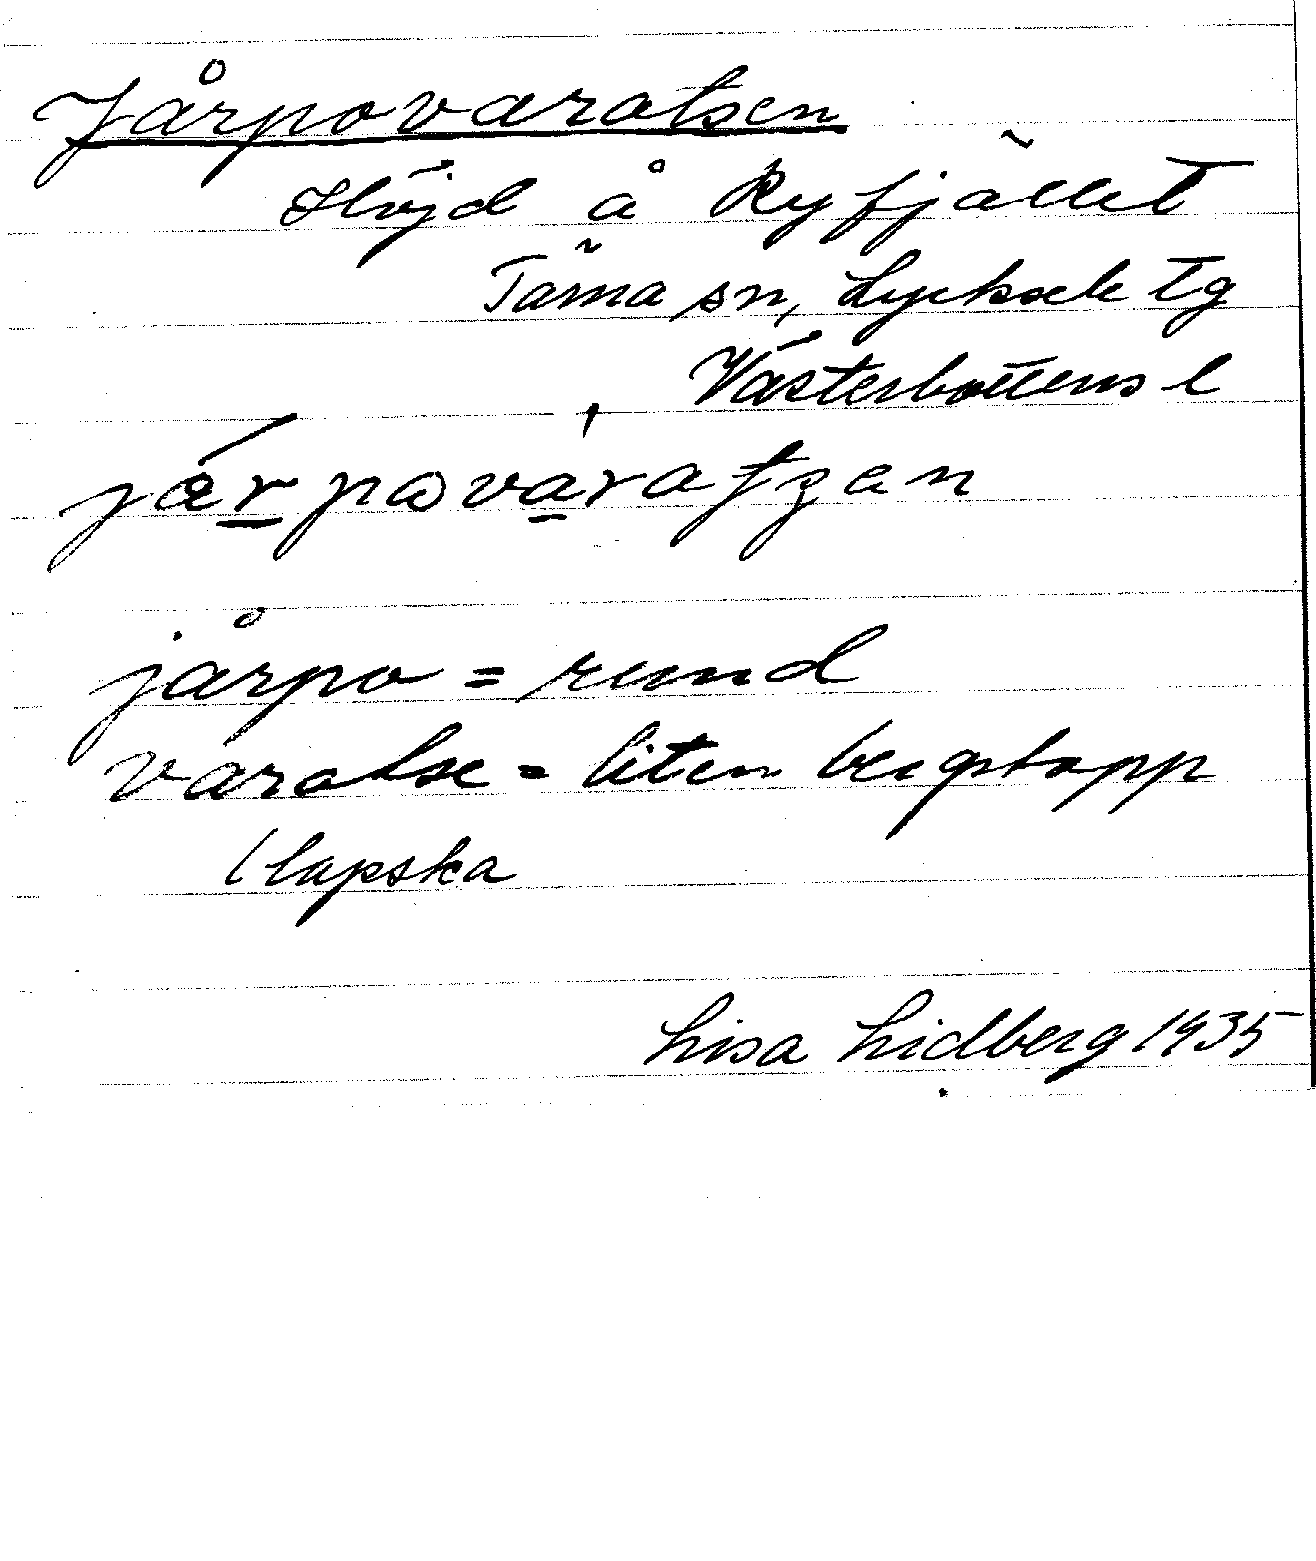 Jårpovaratsen
Höjd å Ryfjället
Tärna sn, Lycksele tg
Västerbottens l
jårpovaratsen
jårpo = rund
varatse = liten bergstopp
(lapska
Lisa Lidberg 1935